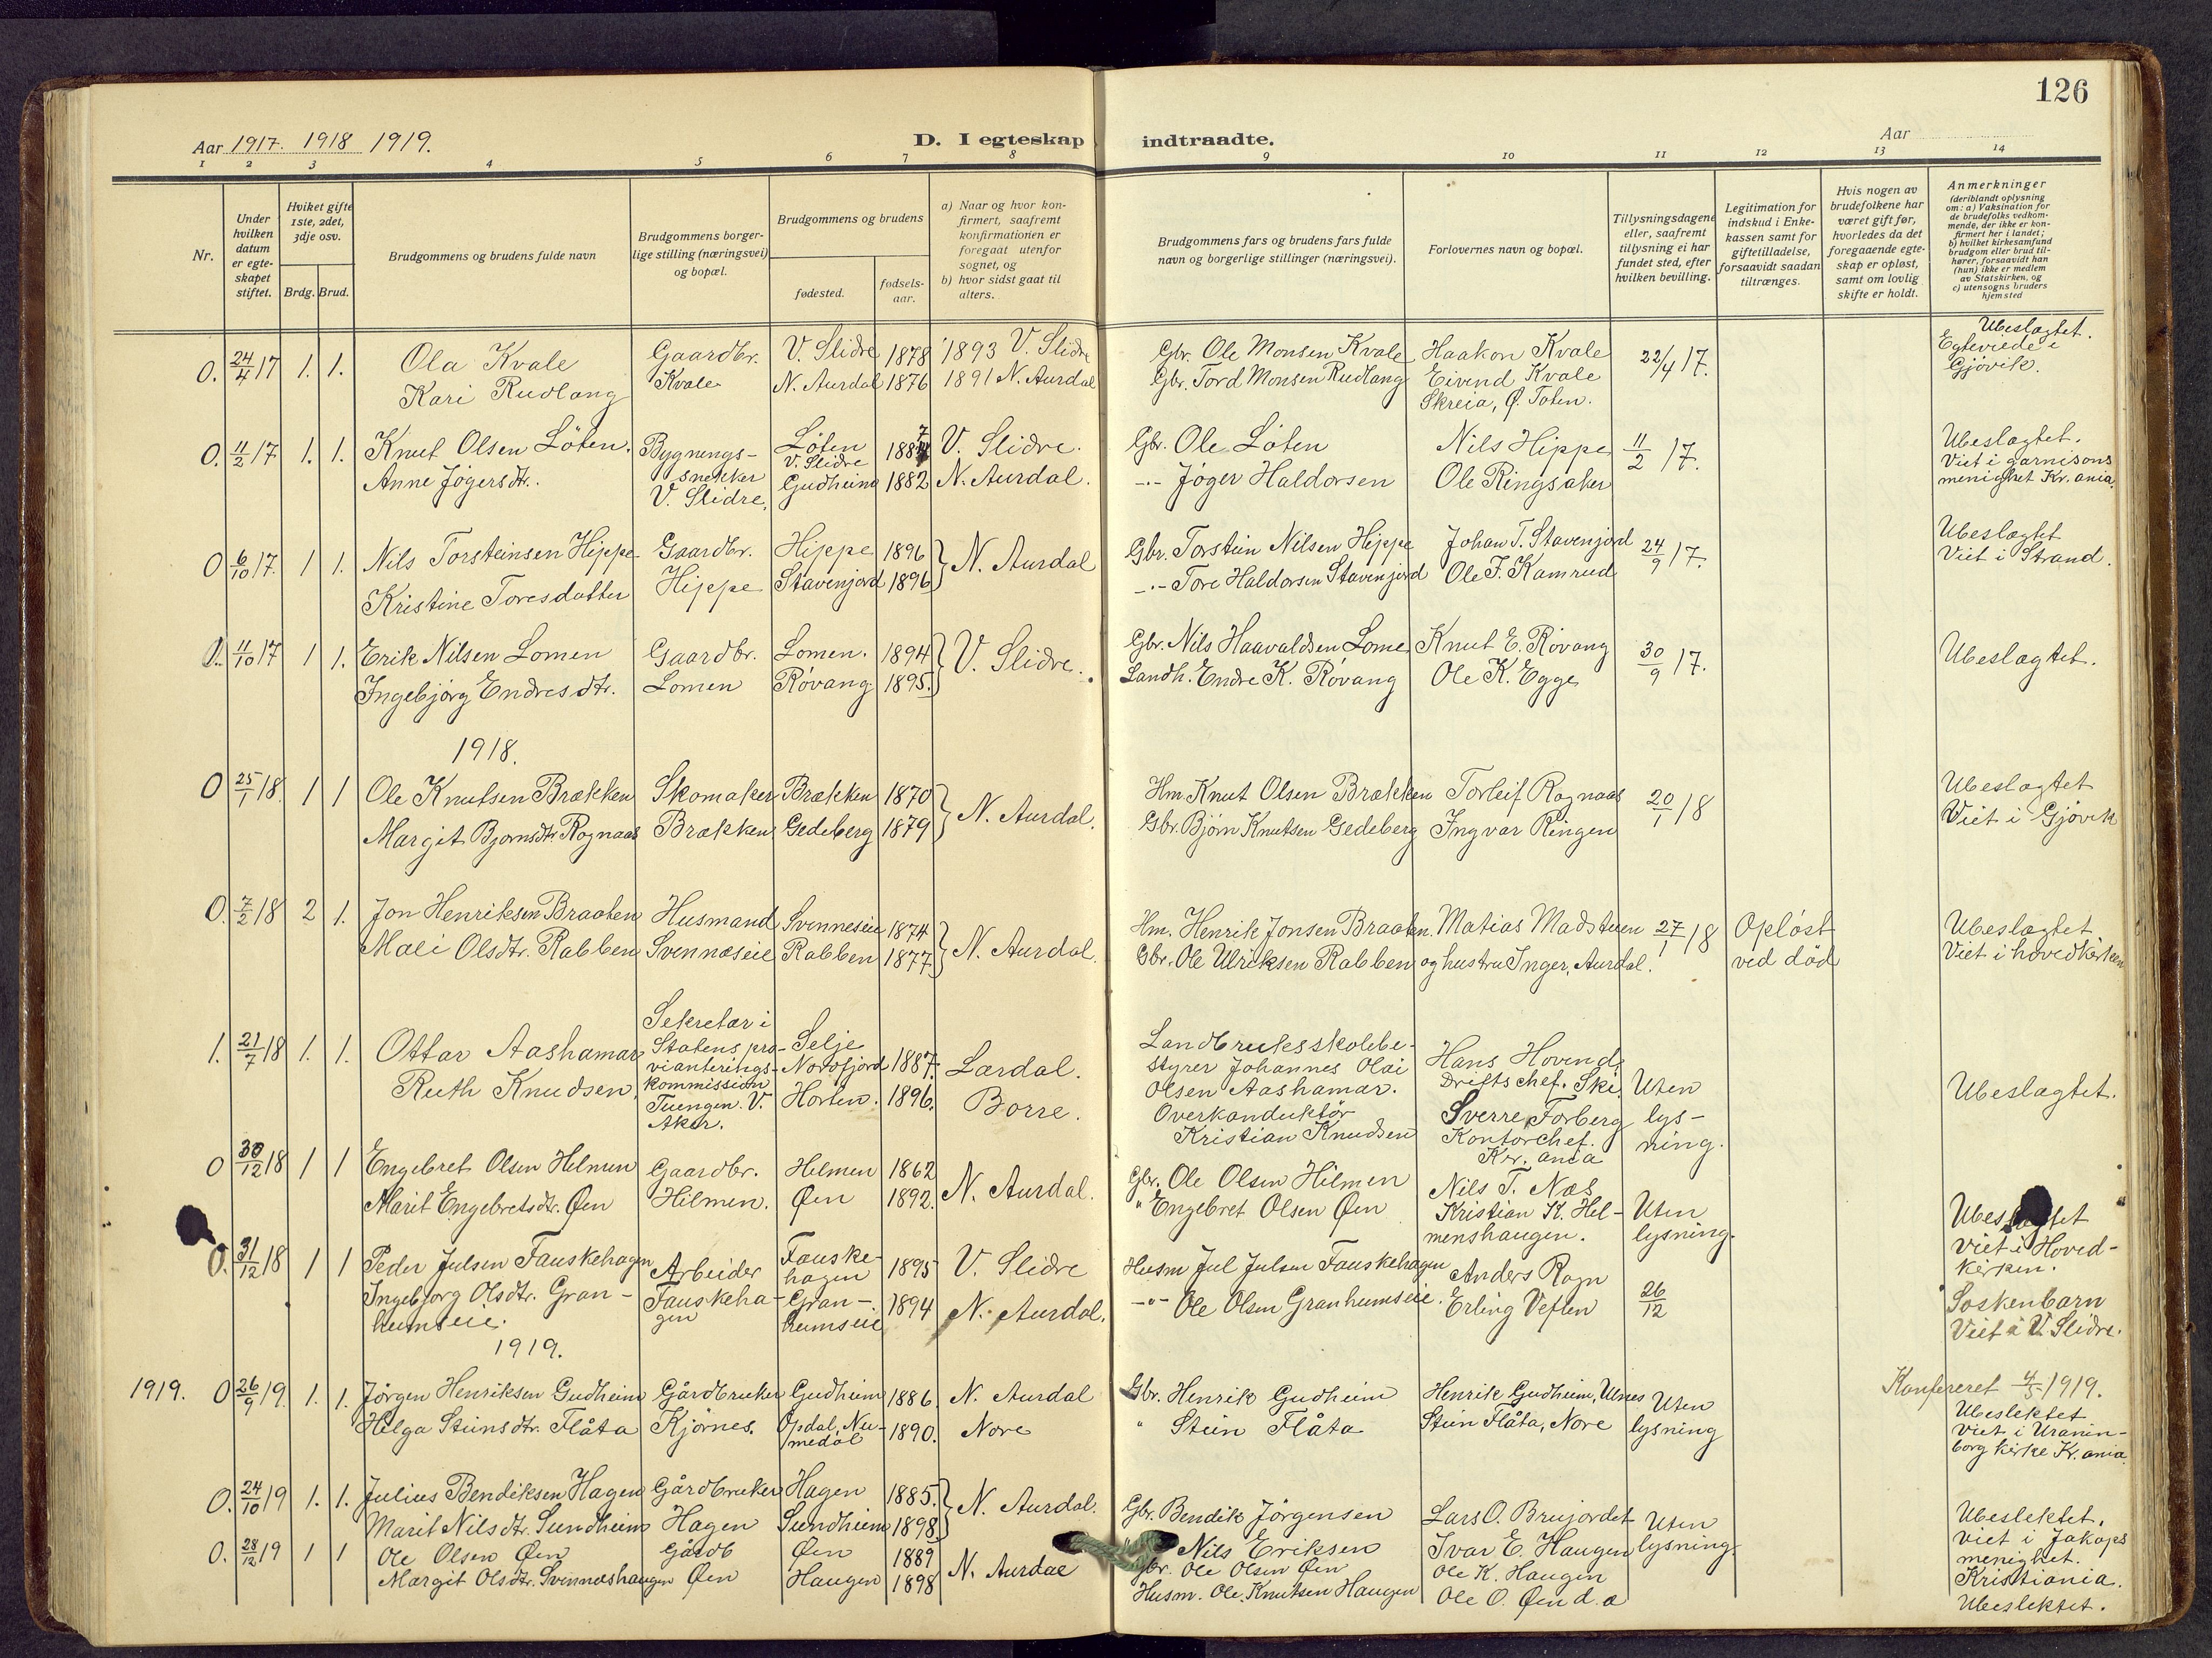 126
Aar 1917. 1918 1919.
D. I egteskap indtraadte.
Aar
1 2 3 4 5 6 7 8 9 10 11 12 13 14
Nr.
Under hvilken datum er egteskapet stiftet.
Hvilket gifte 1ste, 2det, 3dje osv.
Brdg. Brud.
Brudgommens og brudens fulde navn
Brudgommens borgerlige stilling (næringsvei) og bopæl.
Brudgommens og brudens
fødested.
fødselsaar.
a) Naar og hvor konfirmert, saafremt konfirmationen er foregaat utenfor sognet, og
b) hvor sidst gaat til alters.
Brudgommens fars og brudens fars fulde navn og borgerlige stillinger (næringsvei).
Forlovernes navn og bopæl.
Tillysningsdagene eller, saafremt tillysning ei har fundet sted, efter hvilken bevilling.
Legitimation for indskud i Enkekassen samt for giftetilladelse, forsaavidt saadan tiltrænges.
Hvis nogen av brudefolkene har været gift før, hvorledes da det foregaaende egteskap er opløst, samt om lovlig skifte er holdt.
Anmerkninger
(deriblandt oplysning om: a) Vaksination for de brudefolks vedkommende, der ikke er konfirmert her i landet; b) hvilket kirkesamfund brudgom eller brud tilhører, forsaavidt han (hun) ikke er medlem av Statskirken, og c) utensogns bruders hjemsted
0. 24/4 17 1. 1. Ola Kvale Gaardbr. V. Slidre 1878 1893 V. Slidre Gbr. Ole Monsen Kvale Haakon Kvale 22/4 17. Ubeslægtet.
Kari Rudlang Kvale N. Aurdal 1876 1891 N. Aurdal Gbr. Tord Monsen Rudlang Eivend Kvale Egteviede i
Skreia, Ø. Toten. Gjøvik.
0. 11/2 17 1. 1. Knut Olsen Løten. Bygnings- Løten 1887 V. Slidre. Gbr. Ole Løten Nils Hippe 11/2 17. Ubeslægtet.
Anne Jøgersdtr. snekker V. Slidre Viet i garnisons
V. Slidre. Gudheim 1882 N. Aurdal. -"- Jøger Haldorsen Ole Ringsaker menighet Kr.ania.
0 6/10 17. 1 1. Nils Torsteinsen Hippe Gaardbr. Hippe 1896 } N. Aurdal Gbr. Torstein Nilsen Hippe Johan T. Stavenjord 24/9 17. Ubeslægtet
Kristine Toresdatter Hippe Stavenjord 1896 -"- Tore Haldorsen Stavenjord Ole J. Kamrud Viet i Strand.
0. 11/10 17 1 1. Erik Nilsen Lomen Gaardbr. Lomen. 1894 } V. Slidre. Gbr. Nils Haavaldsen Lome Knut E. Røvang 30/9 17. Ubeslægtet.
Ingebjørg Endresdtr. Lomen Røvang 1895. Landh. Endre K. Røvang Ole K. Egge
1918.
0 25/1 18. 1 1 Ole Knutsen Brækken Skomaker Brækken 1870 } N. Aurdal. Hm. Knut Olsen Brækken Torleif Rognaas 20/1 18 Ubeslægtet
Margit Bjørnsdtr. Rognaas Brækken Gedeberg 1879 Gbr. Bjørn Knutsen Gedeberg Ingvar Ringen Viet i Gjøvik
0. 7/2 18 2 1. Jon Henriksen Braaten Husmand Svenneseie 1874 } N. Aurdal. Hm. Henrik Jonsen Braaten. Matias Madstuen 27/1 18 Opløst Ubeslægtet
Mali Olsdtr. Rabben Svennæseie Rabben 1877 Gbr. Ole Ulriksen Rabben og hustru Inger, Aurdal. ved død Viet i hovedkirken
1. 21/7 18 1. 1. Ottar Aashamar Sekretær i Selje Landbruksskolebe-
Ruth Knudsen Statens pro- Nordfjord 1887. Lærdal. styrer Johannes Olai Hans Hovend
vianterings- Olsen Aashamar. Driftschef. Ski Uten Ubeslægtet.
kommission Horten. 1896. Borre. Overkonduktør Sverre Forberg lys-
Tuengen. V. Kristian Knudsen Kontorchef. ning.
Aker. Kr.ania
0 30/12 18 1 1 Engebret Olsen Helmen Gaardbr. Helmen 1862 N. Aurdal. Gbr. Ole Olsen Hilmen Nils T. Næs
Marit Engebretsdtr. Øen Hilmen. Øen 1892. " Engebret Olsen Øen Kristian K. Hel- Uten Ubeslægtet
menshaugen. lysning. Viet i Hoved-
kirken.
0. 31/12 18 1 1 Peder Julsen Fauskehagen Arbeider Fauske- 1895 V. Slidre Husm Jul Julsen Fauskehagen Anders Rogn 26/12
Ingebjørg Olsdtr. Gran- Fauskeha- hagen
heimseie. gen Gran-. 1894 N. Aurdal. -"- Ole Olsen Granheimseie. Erling Veflen Søskenbarn
heimseie Viet i V. Slidre.
1919.
1919. 0 26/9 19. 1. 1. Jørgen Henriksen Gudheim Gårdbruker Gudheim 1886. N. Aurdal Gbr. Henrik Gudheim Henrik Gudheim, Ulnes Uten Konfereret 4/5 1919.
Helga Steinsdtr. Flåta Kjørnes. Opdal, Nu- 1890. Nore " Stein Flåta Stein Flåta, Nore lysning Ubeslektet
medal Viet i Uranien-
borg kirke Kr.ania.
0. 24/10 19 1. 1. Julius Bendiksen Hagen Gårdbruker Hagen 1885. } N. Aurdal. Gbr. Bendik Jørgensen Lars O. Brujordet Uten Ubeslektet.
Marit Nilsdtr. Sundheim Hagen Sundheim 1898 Nils Eriksen Ivar E. Haugen lysning. Viet i Jakops
menighet.
Kristiania.
0. 28/12 19 1 1 Ole Olsen Øen Gårdb Øen 1889 N. Aurdal Gbr. Ole Olsen Øen Ole K. Haugen
Margit Olsdtr. Svennæshaugen Øen Haugen 1898 Husm. Ole Knutsen Haugen Ole O. Øen d.æ Ubeslektet.